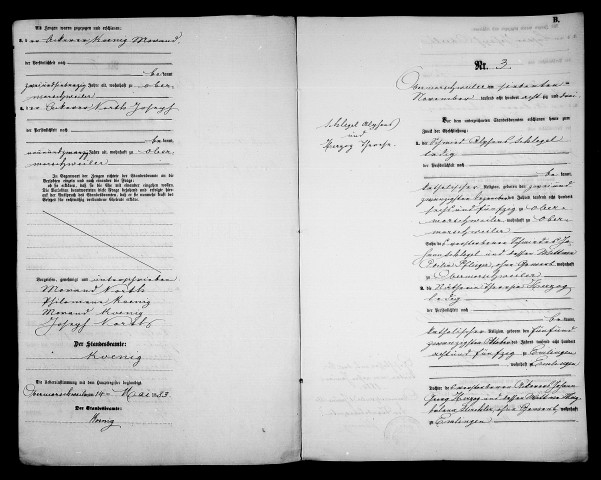 Als Zeugen waren zugegen und erschienen:
3. der Ackerer Koenig Morand
der Persönlichkeit nach
be kannt,
zweiundsiebenzig Jahre alt, wohnhaft zu Ober-
morschweiler
4. der Ackerer North Joseph
der Persönlichkeit nach
be kannt,
Jahre alt, wohnhaft zu Ober-
morschweiler
In Gegenwart der Zeugen richtete der Standesbeamte an die
Verlobten einzeln und nach einander die Frage:
ob sie erklären, daß sie die Ehe mit einander eingehen wollen.
Die Verlobten beantworteten diese Frage bejahend und erfolgte hier-
auf der Ausspruch des Standesbeamten, daß er sie nunmehr kraft des
Gesetzes für rechtmäßig verbundene Eheleute erkläre.
Vorgelesen, genehmigt und unterschrieben
Morand North
Philomene Koenig
Morand Koenig
Joseph North
Der Standesbeamte:
Koenig
Die Uebereinstimmung mit dem Hauptregister beglaubigt
Obermorschweiler, 14ten Mai 1883
Der Standesbeamte:
Koenig
B.
Nr. 3
Obermorschweiler
November tausend acht hundert achtzig und drei
Vor dem unterzeichneten Standesbeamten erschienen heute zum
Zweck der Eheschließung:
Schlegel Alphons
und
Herzog Therese
1. der Schmied Alphons Schlegel
ledig
der Persönlichkeit nach
be kannt,
katholischer Religion, geboren den zweiund
zwanzigsten Dezember des Jahres tausend acht hundert
sechsundfünfzig zu Ober-
morschweiler, wohnhaft zu Ober-
morschweiler
Sohn des verstorbenen Schmiedes Jo-
hann Schlegel und dessen Wittwe
Pflieger, ohne Gewerbe wohnhaft
zu Obermorschweiler
2. die Näherin Therese Herzog
ledig
der Persönlichkeit nach
be kannt,
katholischer Religion, geboren den fünfund
zwanzigsten des Jahres tausend acht hundert
achtundfünfzig zu Emlingen
, wohnhaft zu Emlingen
Tochter des verstorbenen Johann
Georg Herzog und dessen Wittwe Mag-
dalena, ohne Gewerbe, wohnhaft
zu Emlingen